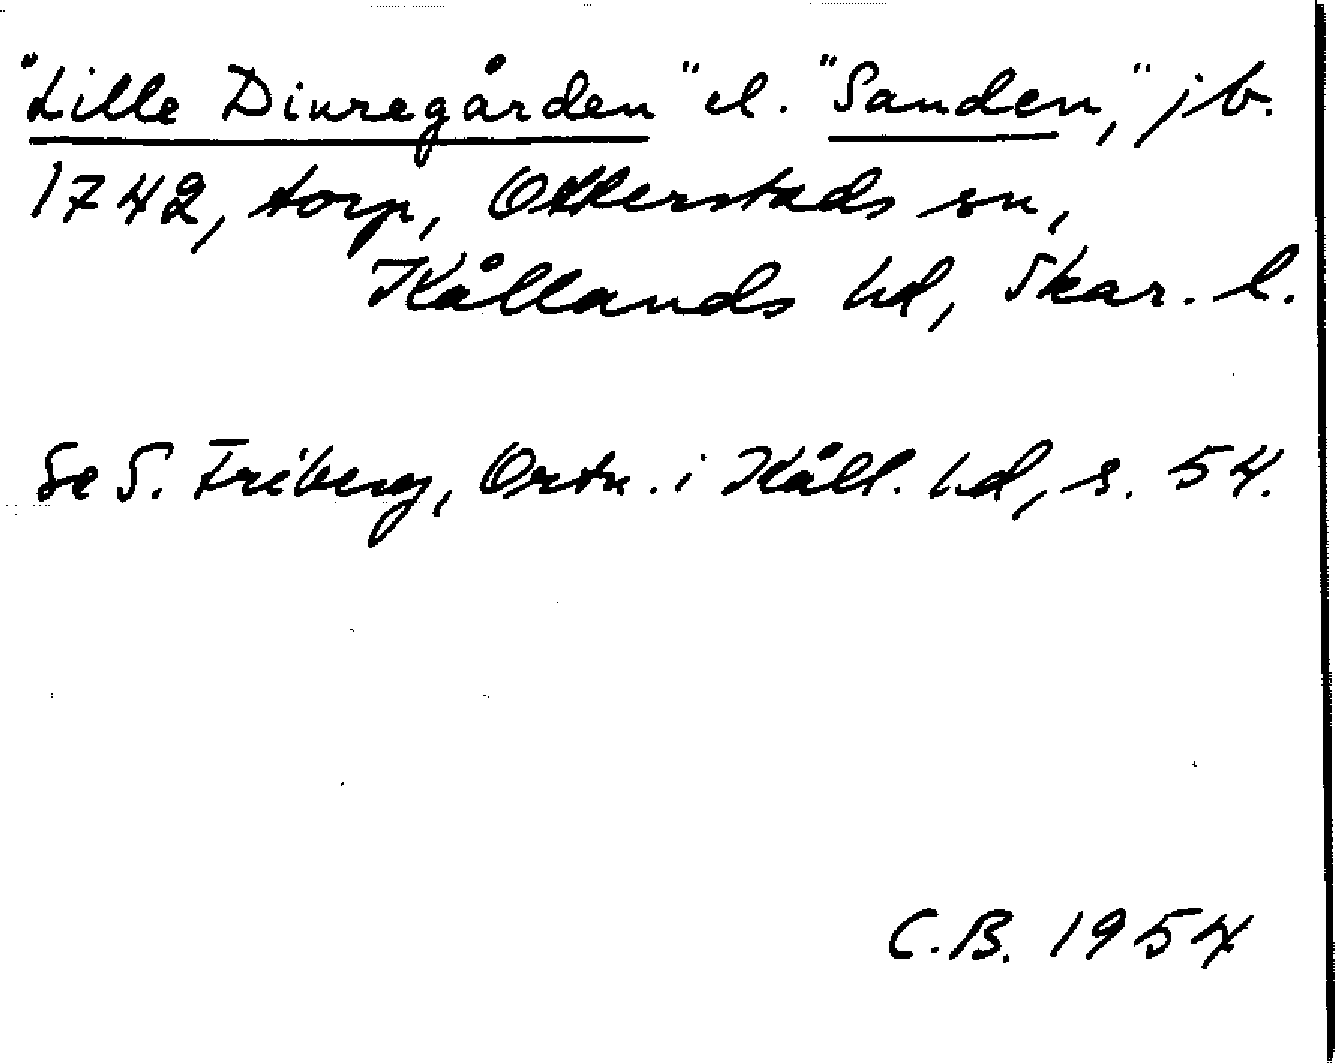 "Lille Diuregården" el. "Sanden," jb.
1742, torp, Otterstads sn,
Kållands hd, Skar. l.
Se S. Friberg, Ortn. i Kåll. hd, s. 54.
C.B. 1954